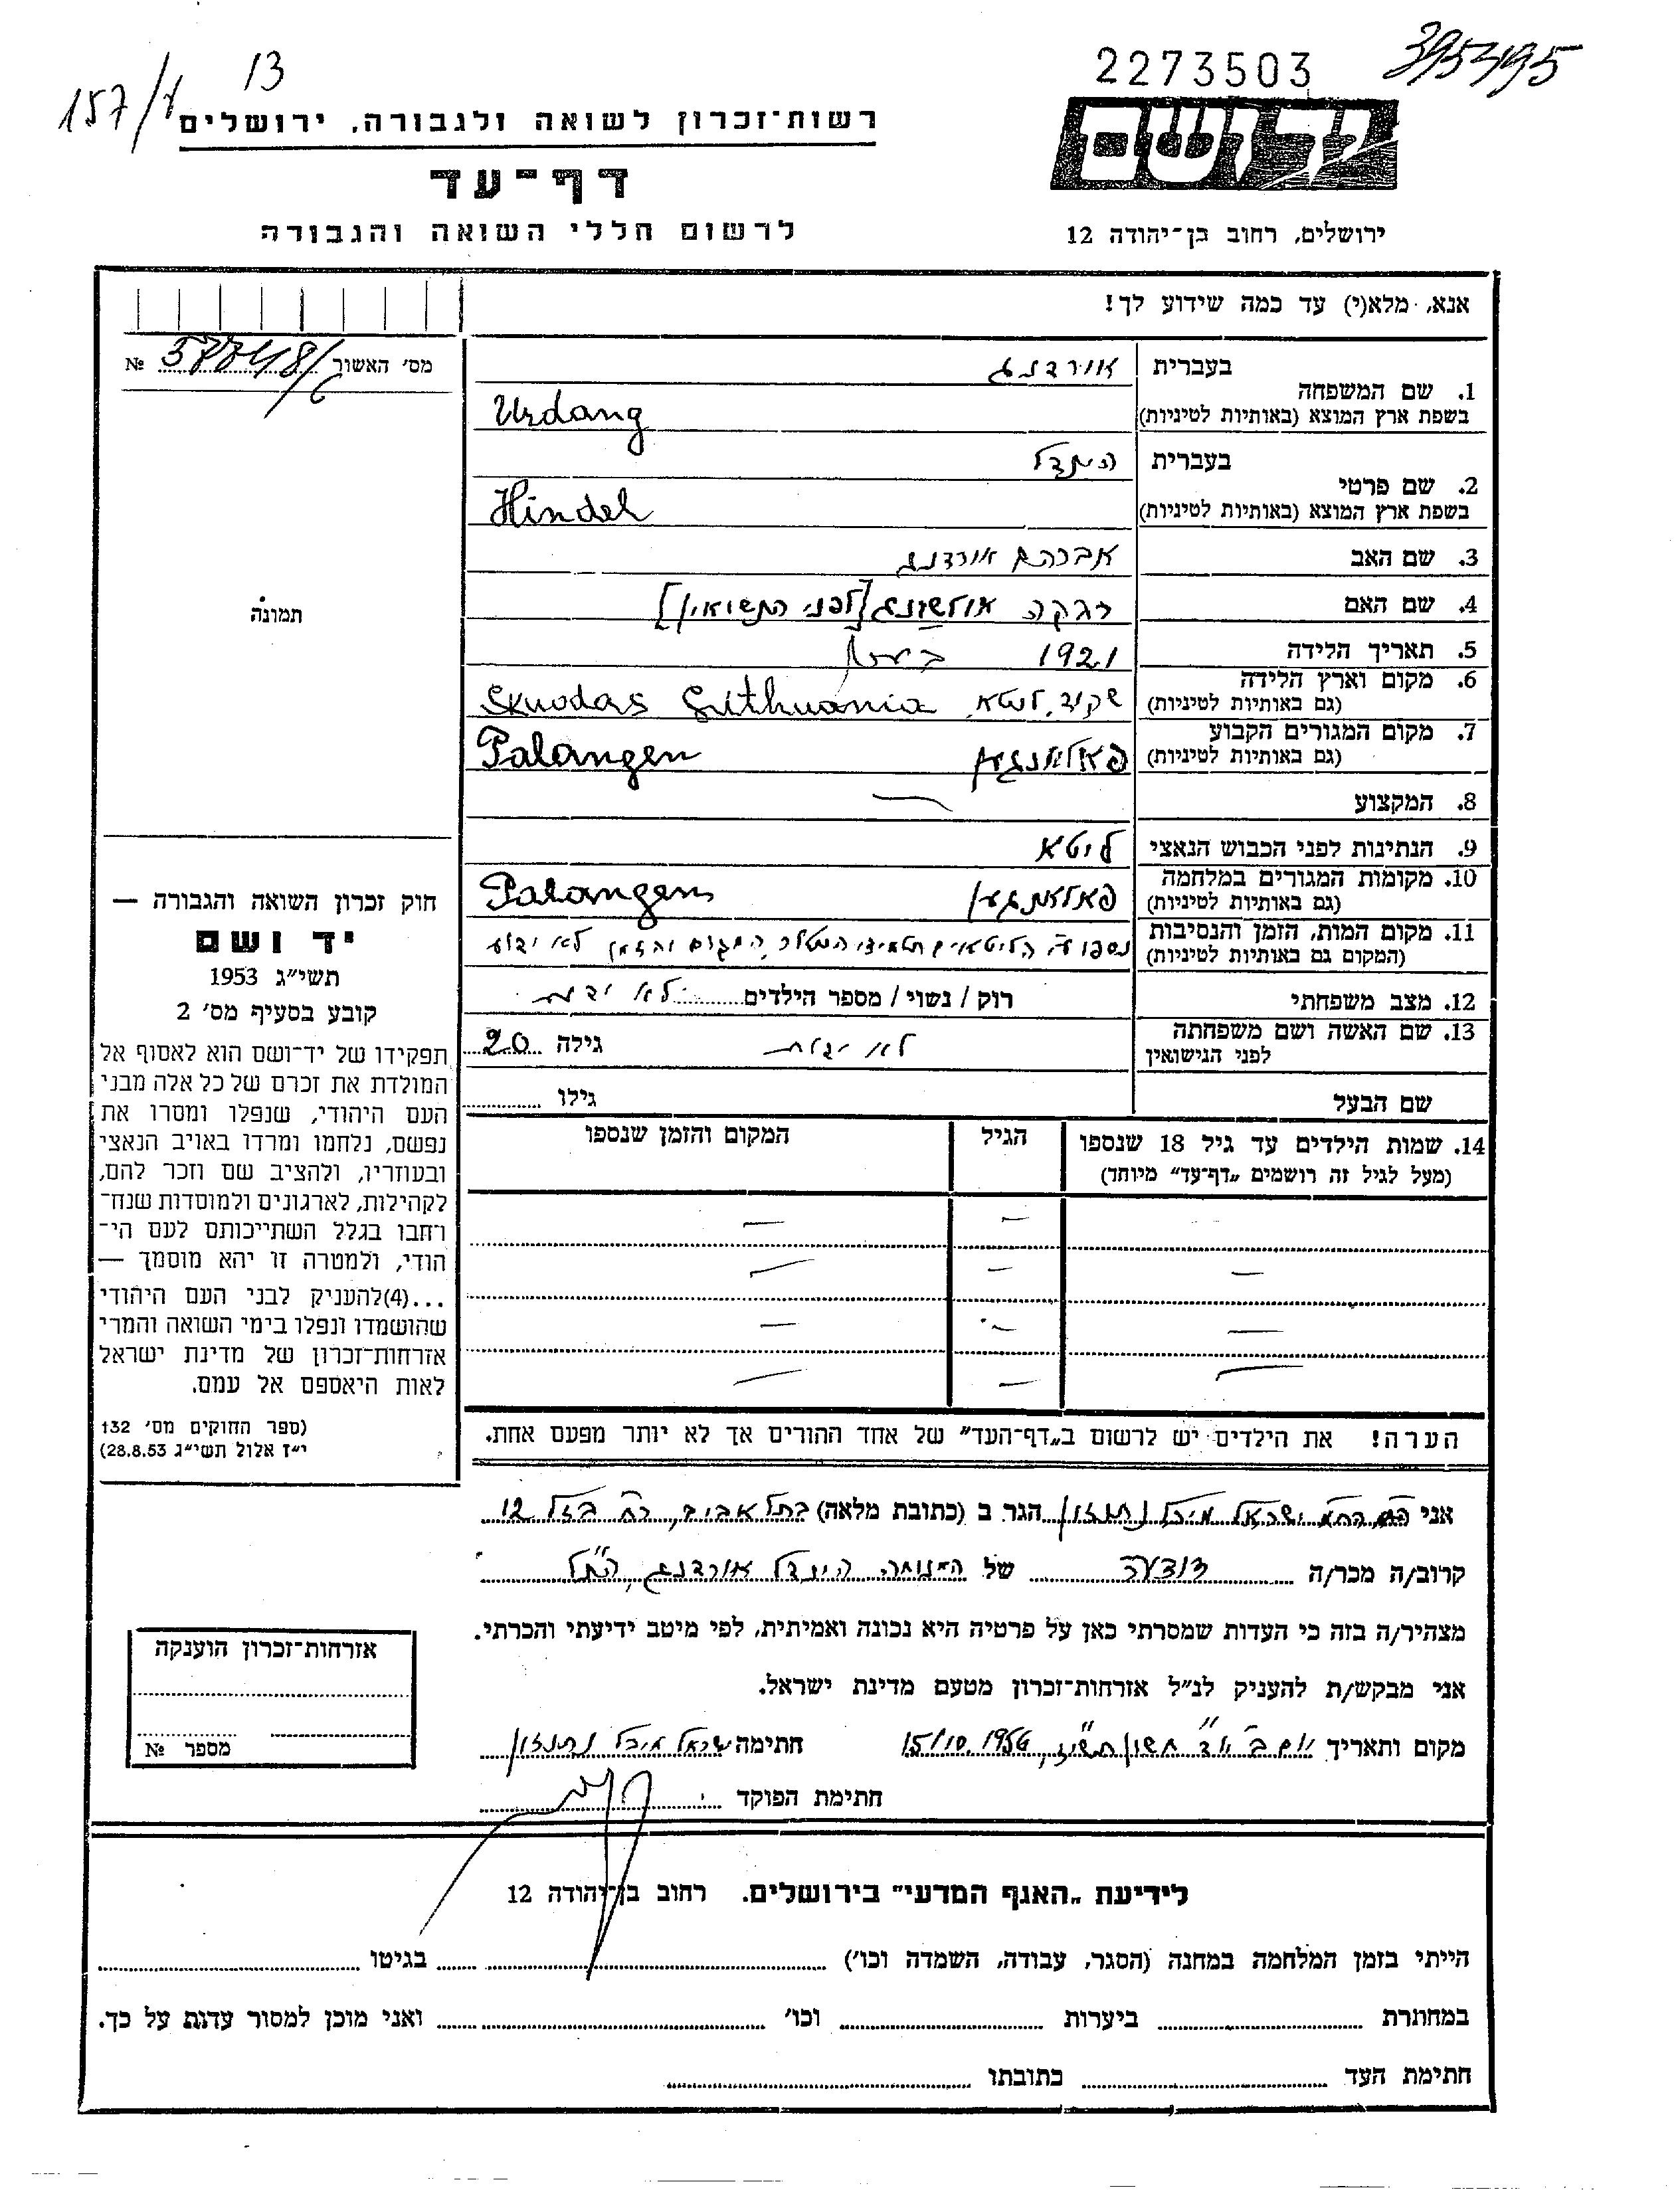 13
157/ע
2273503
395495
רשות־זכרון לשואה ולגבורה, ירושלים
ידושם
דף־עד
לרשום חללי השואה והגבורה
ירושלים, רחוב בן־יהודה 12
אנא, מלא(י) עד כמה שידוע לך!
מס׳ האשור №
בעברית אורדנג
1. שם המשפחה
בשפת ארץ המוצא (באותיות לטיניות) Urdang
בעברית הינדל
2. שם פרטי
בשפת ארץ המוצא (באותיות לטיניות) Hindel
3. שם האב אברהם אורדנג
4. שם האם רבקה [לפני הנשואין]
תמונה
5. תאריך הלידה 1921
6. מקום וארץ הלידה
(גם באותיות לטיניות) שקוד, ליטא, Skuodas Lithuania
7. מקום המגורים הקבוע
(גם באותיות לטיניות) פאלאנגען Palangen
8. המקצוע —
9. הנתינות לפני הכבוש הנאצי ליטא
10. מקומות המגורים במלחמה
(גם באותיות לטיניות) פאלאנגען Palangen
11. מקום המות, הזמן והנסיבות
(המקום גם באותיות לטיניות) נספו ע״י הליטאים תלמידי היטלר, המקום והזמן לא ידוע
12. מצב משפחתי רוק / נשוי / מספר הילדים לא ידוע
13. שם האשה ושם משפחתה
לפני הנישואין לא ידוע גילה 20
שם הבעל גילו
14. שמות הילדים עד גיל 18 שנספו הגיל המקום והזמן שנספו
(מעל לגיל זה רושמים „דף־עד״ מיוחד)
— — —
— — —
— — —
— — —
הערה! את הילדים יש לרשום ב„דף־העד״ של אחד ההורים אך לא יותר מפעם אחת.
חוק זכרון השואה והגבורה —
יד ושם
תשי״ג 1953
קובע בסעיף מס׳ 2
תפקידו של יד־ושם הוא לאסוף אל
המולדת את זכרם של כל אלה מבני
העם היהודי, שנפלו ומסרו את
נפשם, נלחמו ומרדו באויב הנאצי
ובעוזריו, ולהציב שם וזכר להם,
לקהילות, לארגונים ולמוסדות שנח־
רחבו בגלל השתייכותם לעם הי־
הודי, ולמטרה זו יהא מוסמך —
...(4)להעניק לבני העם היהודי
שהושמדו ונפלו בימי השואה והמרי
אזרחות־זכרון של מדינת ישראל
לאות היאספם אל עמם.
(ספר החוקים מס׳ 132
י״ז אלול תשי״ג 28.8.53)
אני ישראל מיכל נתנזון הגר ב (כתובת מלאה) בתל אביב, רח׳ בזל 12
קרוב/ה מכר/ה של המנוחה הינדל אורדנג, הנ״ל
מצהיר/ה בזה כי העדות שמסרתי כאן על פרטיה היא נכונה ואמיתית, לפי מיטב ידיעתי והכרתי.
אני מבקש/ת להעניק לנ״ל אזרחות־זכרון מטעם מדינת ישראל.
מקום ותאריך יום ב׳ י״ד חשון תשי״ז, 15/10.1956 חתימה ישראל מיכל נתנזון
חתימת הפוקד
אזרחות־זכרון הוענקה
מספר №
לידיעת „האגף המדעי״ בירושלים. רחוב בן־יהודה 12
הייתי בזמן המלחמה במחנה (הסגר, עבודה, השמדה וכו׳) בגיטו
במחתרת ביערות וכו׳ ואני מוכן למסור עדות על כך.
חתימת העד כתובתו